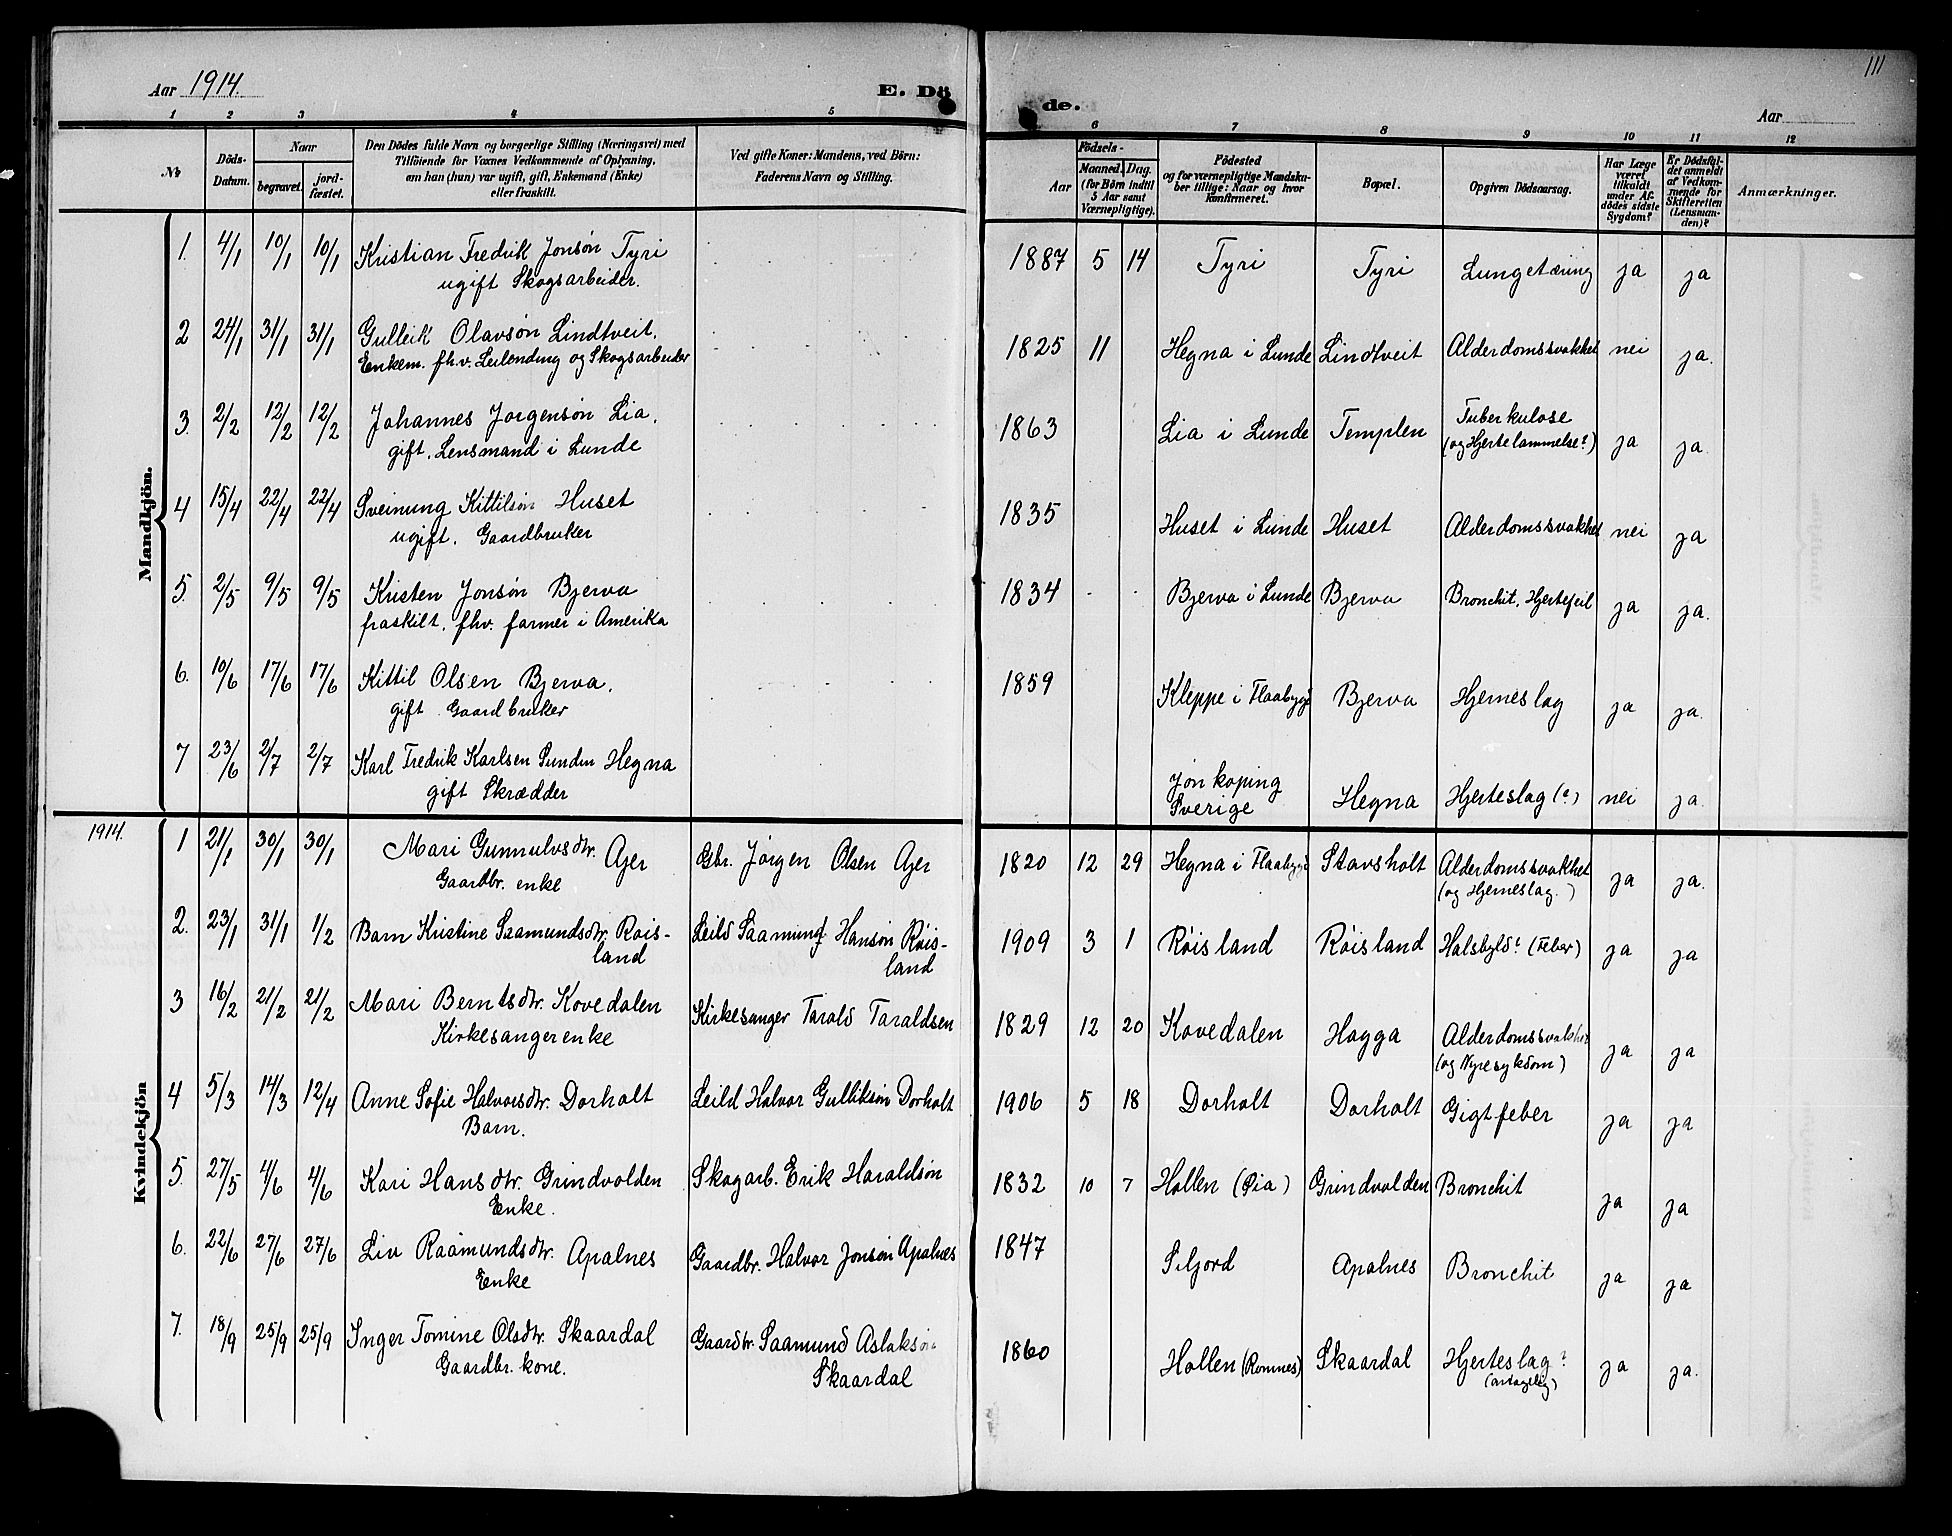 111
Aar 1914.
E. Dö
de.
Aar
1 2 3 4 5
6 7 8 9 10 11 12
No
Döds-Datum.
Naar
begravet.
jord-fæstet.
Den Dödes fulde Navn og borgerlige Stilling (Næringsvei) med
Tilföiende for Voxnes Vedkommende af Oplysning,
om han (hun) var ugift, gift, Enkemand (Enke)
eller fraskilt.
Ved gifte Koner: Mandens, ved Börn:
Faderens Navn og Stilling.
Födsels-
Aar
Maaned. Dag.
(for Börn indtil
5 Aar samt
Værnepligtige).
Födested
og for værnepligtige Mandsku-
ber tillige: Naar og hvor
konfirmeret.
Bopæl.
Opgiven Dödsaarsag.
Har Læge
været
tilkaldt
under Af-
dödes sidste
Sygdom?
Er Dödsfal-
det anmeldt
af Vedkom-
mende for
Skifteretten
(Lensman-
den)?
Anmærkninger.
Mandkjön.
1. 4/1 10/1 10/1 Kristian Fredrik Jonsøn Tyri 1887 5 14 Tyri Tyri Lungetæring ja ja
ugift Skogsarbeider.
2 24/1 31/1 31/1 Gulleik Olavsøn Lindtveit. 1825 11 Hegna i Lunde Lindtveit Alderdomssvakhet nei ja.
Enkem. fhv. Leilending og Skogsarbeider
3. 2/2 12/2 12/2 Johannes Jørgensøn Lia. 1863 Lia i Lunde Templen Tuberkulose
gift. Lensmand i Lunde (og Hjertelammelse?) ja ja.
4 15/4 22/4 22/4 Sveinung Kittilsøn Huset 1835 Huset i Lunde Huset Alderdomssvakhet nei ja
ugift. Gaardbruker
5. 2/5 9/5 9/5 Kristen Jonsøn Bjerva 1834 Bjerva i Lunde Bjerva Bronchit, Hjertefeil ja ja.
fraskilt, fhv. farmer i Amerika
6. 10/6 17/6 17/6 Kittil Olsen Bjerva. 1859 Kleppe i Flaabygd Bjerva Hjerneslag ja ja.
gift Gaardbruker
7 23/6 2/7 2/7 Karl Fredrik Karlsen Sunden Hegna Jønkøping
gift Skrædder Sverige Hegna Hjerteslag (?) nei ja.
1914.
Kvindekjön
1 21/1 30/1 30/1 Mari Gunnulvsdtr. Ajer Gbr. Jørgen Olsen Ajer 1820 12 29 Hegna i Flaabygd Stavsholt Alderdomssvakhet ja ja.
Gaardbr. enke (og Hjerneslag.)
2. 23/1 31/1 1/2 Barn Kristine Saamundsdtr. Røis- Leild Saamund Hansøn Røis- 1909 3 1 Røisland Røisland Halsbyld? (Feber) ja ja
land land
3 16/2 21/2 21/2 Mari Berntsdtr. Kovedalen Kirkesanger Tarald Taraldsen 1829 12 20 Kovedalen Hagga Alderdomssvakhet ja ja
Kirkesangerenke (og Nyresykdom)
4 5/3 14/3 12/4 Anne Sofie Halvorsdtr. Dorholt Leild Halvor Gulliksøn Dorholt 1906 5 18 Dorholt Dorholt Gigtfeber ja ja
Barn.
5. 27/5 4/6 4/6 Kari Hansdtr. Grindvolden Skogarb. Erik Haraldsøn 1832 10 7 Hollen (Øia) Grindvolden Bronchit ja ja
Enke.
6. 22/6 27/6 27/6 Liv Raamundsdtr. Apalnes Gaardbr. Halvor Jonsøn Apalnes 1847 Siljord Apalnes Bronchit ja ja
Enke
7. 18/9 25/9 25/9 Inger Tomine Olsdtr. Skaardal Gaardbr. Saamund Aslaksøn 1860 Hollen (Romnes) Skaardal Hjerteslag? ja ja.
Gaardbr. kone. Skaardal (antagelig)